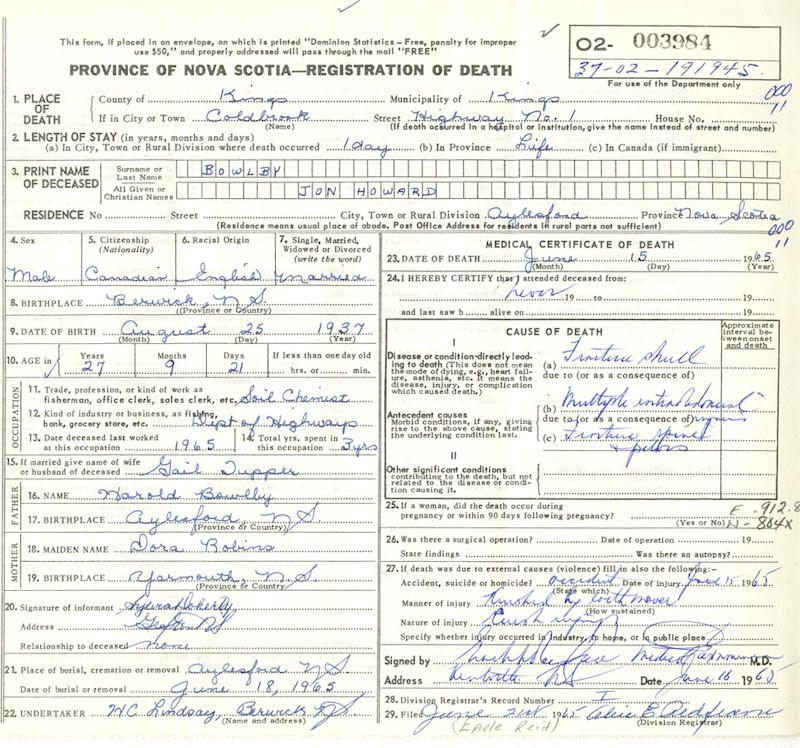 This form, if placed in an envelope, on which is printed "Dominion Statistics – Free, penalty for improper
use $50," and properly addressed will pass through the mail "FREE"
PROVINCE OF NOVA SCOTIA—REGISTRATION OF DEATH
O2- 003984
37-02-191945.
For use of the Department only
1. PLACE OF DEATH County of Kings Municipality of Kings 000
If in City or Town Coldbrook Street Highway No. 1 House No. 11
(Name) (If death occurred in a hospital or institution, give the name instead of street and number)
2. LENGTH OF STAY (in years, months and days)
(a) In City, Town or Rural Division where death occurred 1 day (b) In Province Life (c) In Canada (if immigrant)
3. PRINT NAME OF DECEASED Surname or Last Name BOWLBY
All Given or Christian Names JON HOWARD
RESIDENCE No Street City, Town or Rural Division Aylesford Province Nova Scotia
(Residence means usual place of abode. Post Office Address for residents in rural parts not sufficient) 000
11
4. Sex 5. Citizenship (Nationality) 6. Racial Origin 7. Single, Married, Widowed or Divorced (write the word)
Male Canadian English Married
8. BIRTHPLACE Berwick, N.S.
(Province or Country)
9. DATE OF BIRTH August 25 1937
(Month) (Day) (Year)
10. AGE in Years Months Days If less than one day old
27 9 21 hrs. or min.
OCCUPATION
11. Trade, profession, or kind of work as
fisherman, office clerk, sales clerk, etc. Soil Chemist
12. Kind of industry or business, as fishing,
bank, grocery store, etc. Dept of Highways
13. Date deceased last worked at this occupation 1965 14. Total yrs. spent in this occupation 3 yrs
15. If married give name of wife
or husband of deceased Gail Tupper
FATHER
16. NAME Harold Bowlby
17. BIRTHPLACE Aylesford, N.S.
(Province or Country)
MOTHER
18. MAIDEN NAME Dora Robins
19. BIRTHPLACE Yarmouth, N.S.
(Province or Country)
20. Signature of informant
Address
Relationship to deceased
21. Place of burial, cremation or removal Aylesford N.S
Date of burial or removal June 18, 1965
22. UNDERTAKER H.C. Lindsay, Berwick N.S
(Name and address)
MEDICAL CERTIFICATE OF DEATH
23. DATE OF DEATH June 15 1965
(Month) (Day) (Year)
24. I HEREBY CERTIFY that I attended deceased from:
never 19 to 19
and last saw h alive on 19
CAUSE OF DEATH
Approximate interval between onset and death
I
Disease or condition directly leading to death (This does not mean
the mode of dying, e.g., heart failure, asthenia, etc. It means the
disease, injury, or complication
which caused death.)
(a) Fracture skull
due to (or as a consequence of)
Antecedent causes
Morbid conditions, if any, giving
rise to the above cause, stating
the underlying condition last.
(b) Multiple intra abdominal
due to (or as a consequence of) injuries
(c) Fracture spine
+ pelvis
II
Other significant conditions
contributing to the death, but not
related to the disease or condition causing it.
25. If a woman, did the death occur during
pregnancy or within 90 days following pregnancy?
(Yes or No)
E-912.8
N-804X
26. Was there a surgical operation? Date of operation 19
State findings Was there an autopsy?
27. If death was due to external causes (violence) fill in also the following:–
Accident, suicide or homicide? accident Date of injury June 15 1965
(State which)
Manner of injury Crushed by earth mover
(How sustained)
Nature of injury Crush injury
Specify whether injury occurred in Industry, in home, or in public place
Signed by Medical Examiner M.D.
Address Kentville NS Date June 16 1965
28. Division Registrar's Record Number
29. Filed June 21st 1965
(Division Registrar)
(Earle Reid)